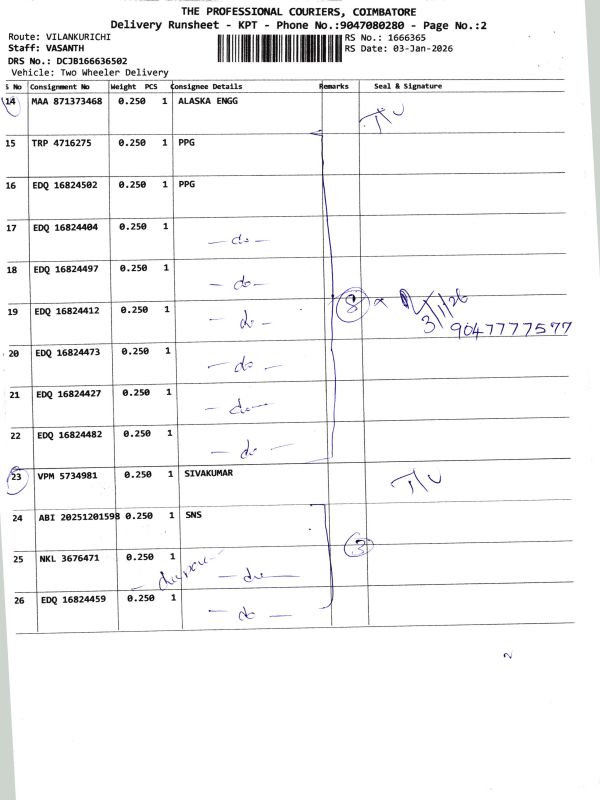 THE PROFESSIONAL COURIERS, COIMBATORE
Delivery Runsheet - KPT - Phone No.:9047080280 - Page No.:2
Route: VILANKURICHI
RS No.: 1666365
Staff: VASANTH
RS Date: 03-Jan-2026
DRS No.: DCJB166636502
Vehicle: Two Wheeler Delivery
S No Consignment No Weight PCS Consignee Details Remarks Seal & Signature
14 MAA 871373468 0.250 1 ALASKA ENGG
15 TRP 4716275 0.250 1 PPG
16 EDQ 16824502 0.250 1 PPG
17 EDQ 16824404 0.250 1 - do -
18 EDQ 16824497 0.250 1 - do -
8
3/1/26
19 EDQ 16824412 0.250 1 - do -
9047777577
20 EDQ 16824473 0.250 1 - do -
21 EDQ 16824427 0.250 1 - do -
22 EDQ 16824482 0.250 1 - do -
23 VPM 5734981 0.250 1 SIVAKUMAR
24 ABI 20251201598 0.250 1 SNS
3
25 NKL 3676471 0.250 1 - do -
26 EDQ 16824459 0.250 1 - do -